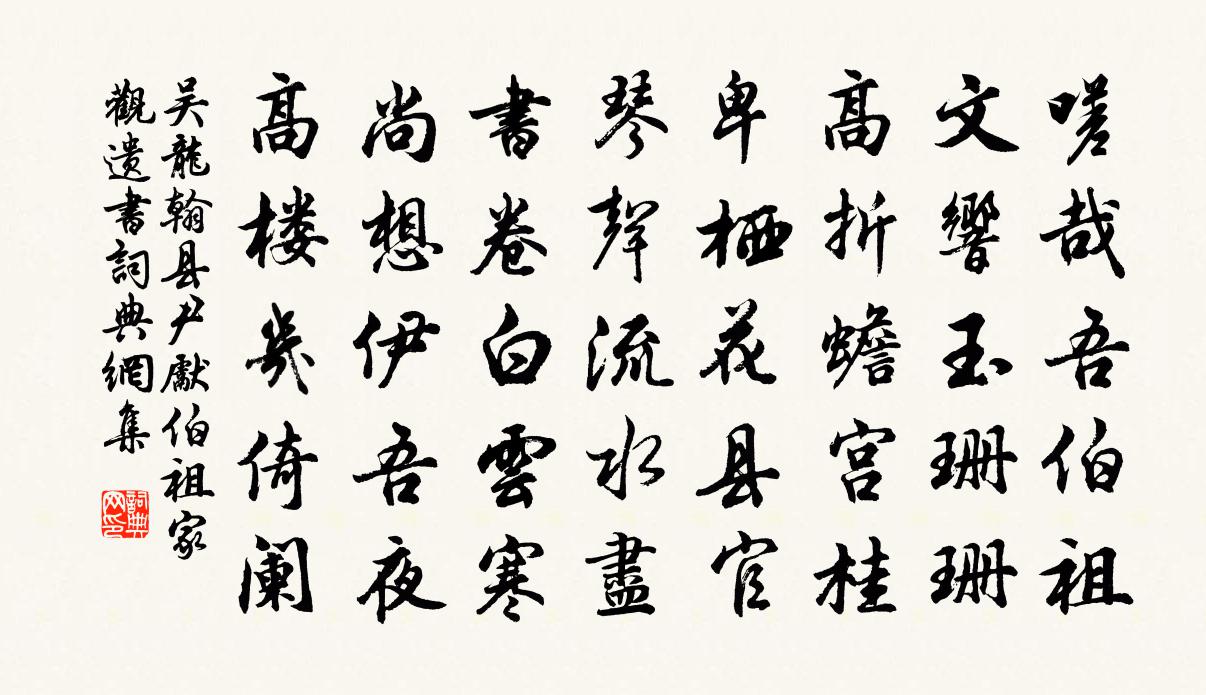 嗟哉吾伯祖
文響玉珊珊
高折蟾宫桂
卑栖花县官
琴聲流水盡
書卷白雲寒
尚想伊吾夜
高楼幾倚阑
吴龍翰县尹獻伯祖家
觀遗書詞典網集
詞典
网印